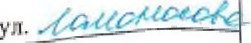 ул. Ломоносова